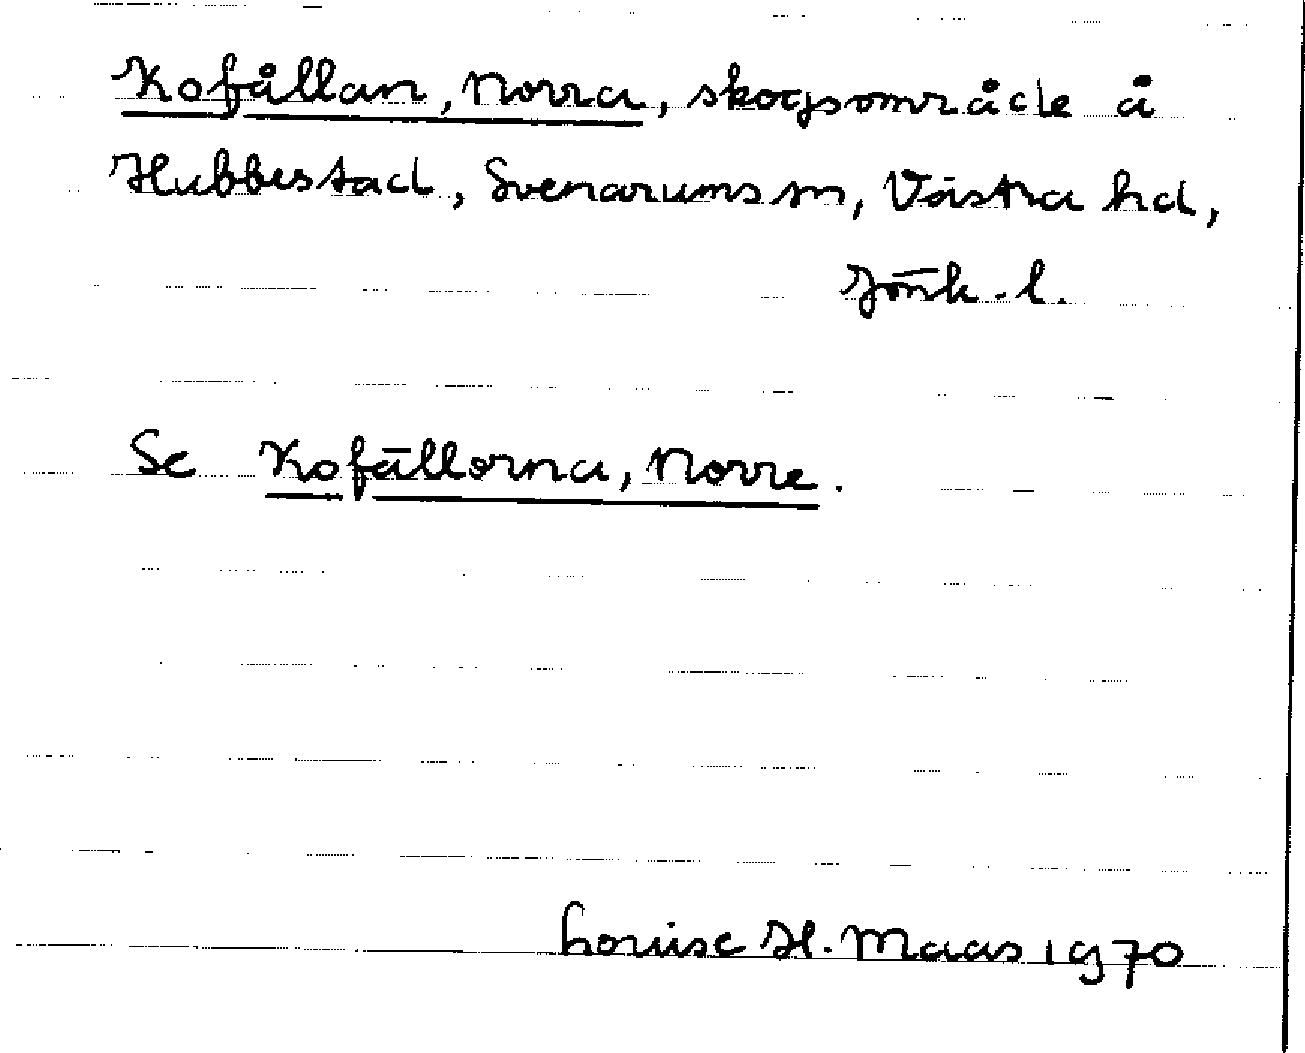 Kofållan, Norra, skogsområde å
Hubbestad, Svenarums sn, Västra hd,
Jönk. l.
Se Kofållorna, Norre.
Louise H. Maas 1970